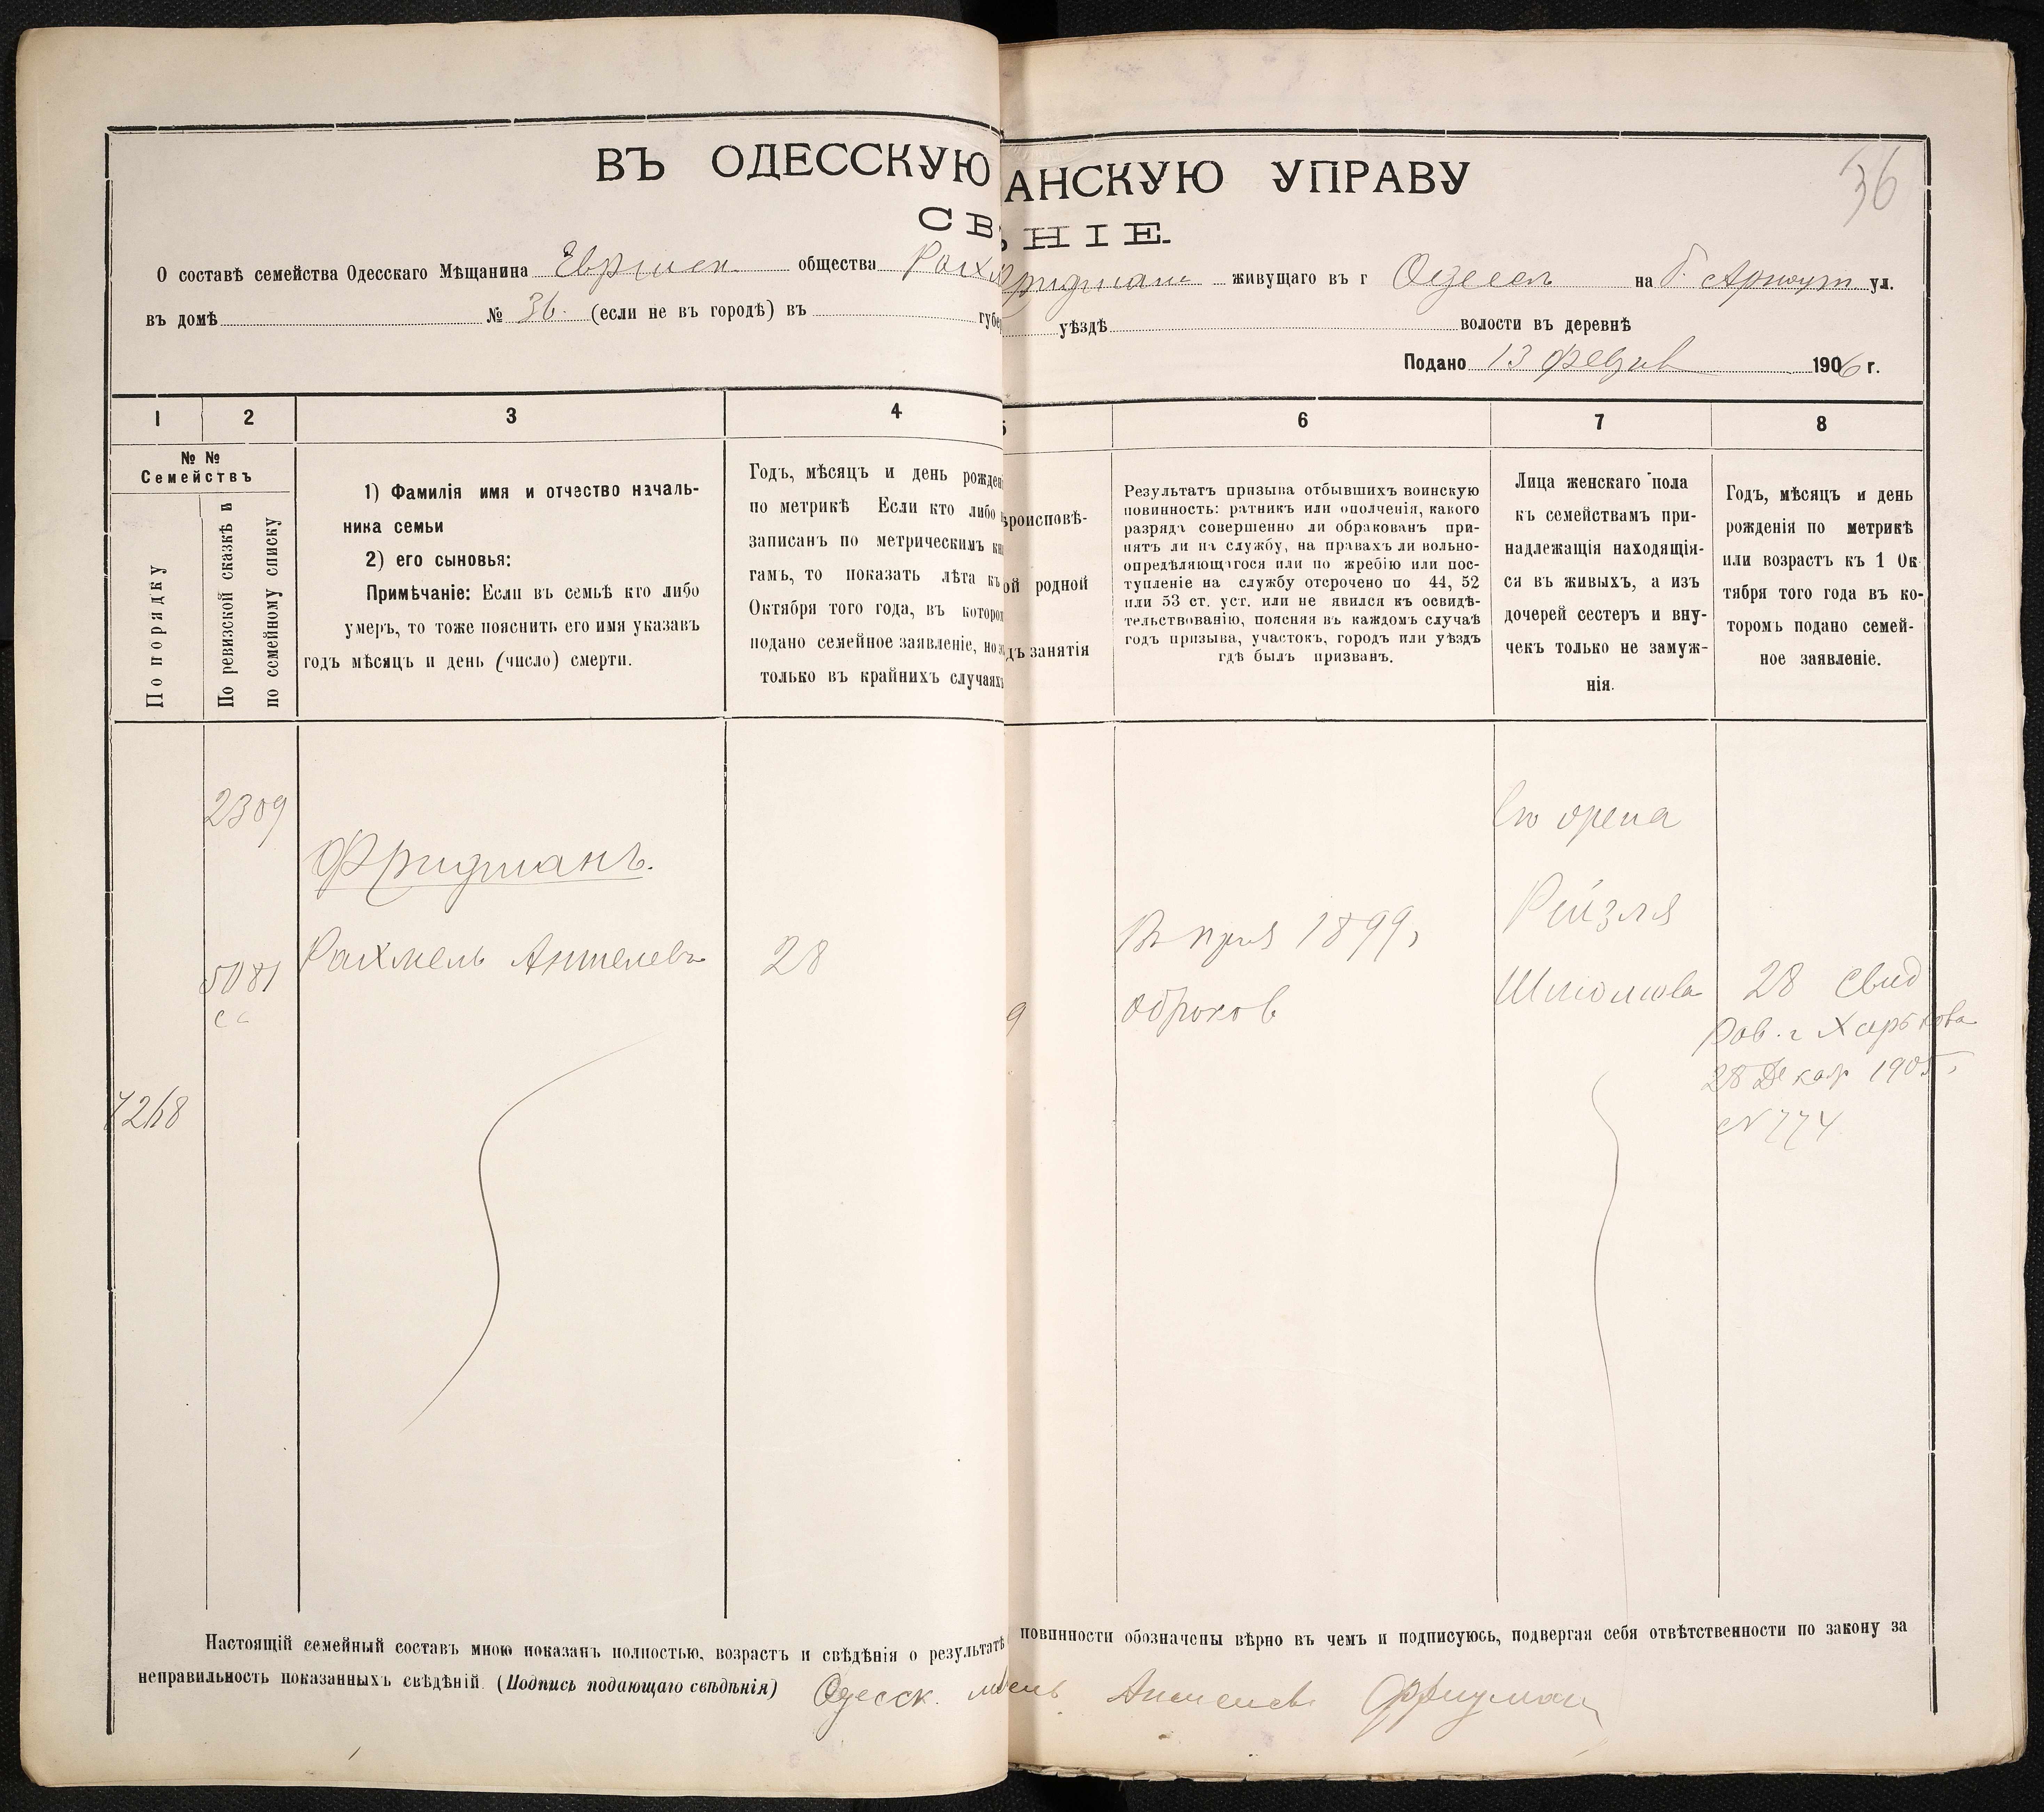 ВЪ ОДЕССКУЮ АНСКУЮ УПРАВУ
36
СВ НІЕ.
О составѣ семейства Одесскаго Мѣщанина Еврейск общества Рахм Фридман живущаго въ г Одессѣ на Б. Арнаут ул.
въ домѣ № 36. (если не въ городѣ) въ губе уѣздѣ волости въ деревнѣ
Подано 13 феврал 1906 г.
1 2 3 4 5 6 7 8
№ №
Семействъ
По порядку
По ревизской сказкѣ и
по семейному списку
1) Фамилія имя и отчество началь-
ника семьи
2) его сыновья:
Примѣчаніе: Если въ семьѣ кто либо
умеръ, то тоже пояснить его имя указавъ
годъ мѣсяцъ и день (число) смерти.
Годъ, мѣсяцъ и день рожден
по метрикѣ Если кто либо
записанъ по метрическимъ кн
гамъ, то показать лѣта къ
Октября того года, въ которо
подано семейное заявленіе, но
только въ крайнихъ случаяхъ
ѣроисповѣ-
ой родной
дъ занятія
Результатъ призыва отбывшихъ воинскую
повинность: ратникъ или ополченія, какого
разряда совершенно ли обракованъ при-
нятъ ли на службу, на правахъ ли вольно-
опредѣляющагося или по жребію или пос-
тупленіе на службу отсрочено по 44, 52
или 53 ст. уст. или не явился къ освидѣ-
тельствованію, поясняя въ каждомъ случаѣ
годъ призыва, участокъ, городъ или уѣздъ
гдѣ былъ призванъ.
Лица женскаго пола
къ семействамъ при-
надлежащія находящія-
ся въ живыхъ, а изъ
дочерей сестеръ и вну-
чекъ только не замуж-
нія.
Годъ, мѣсяцъ и день
рожденія по метрикѣ
или возрастъ къ 1 Ок
тября того года въ ко-
торомъ подано семей-
ное заявленіе.
2309
Фридманъ.
5081
сс
Рахмель Аншелевъ
28
7268
В приз 1899,
обраков
Его жена
Рейзля
Шлиомова
28 Свид
Рав. г Харькова
28 Декаб 1905,
№ 774
Настоящій семейный составъ мною показанъ полностью, возрастъ и свѣдѣнія о результатѣ повинности обозначены вѣрно въ чемъ и подписуюсь, подвергая себя отвѣтственности по закону за
неправильность показанныхъ свѣдѣній. (Подпись подающаго свѣдѣнія) Одесск. мель Аншелев Фридман